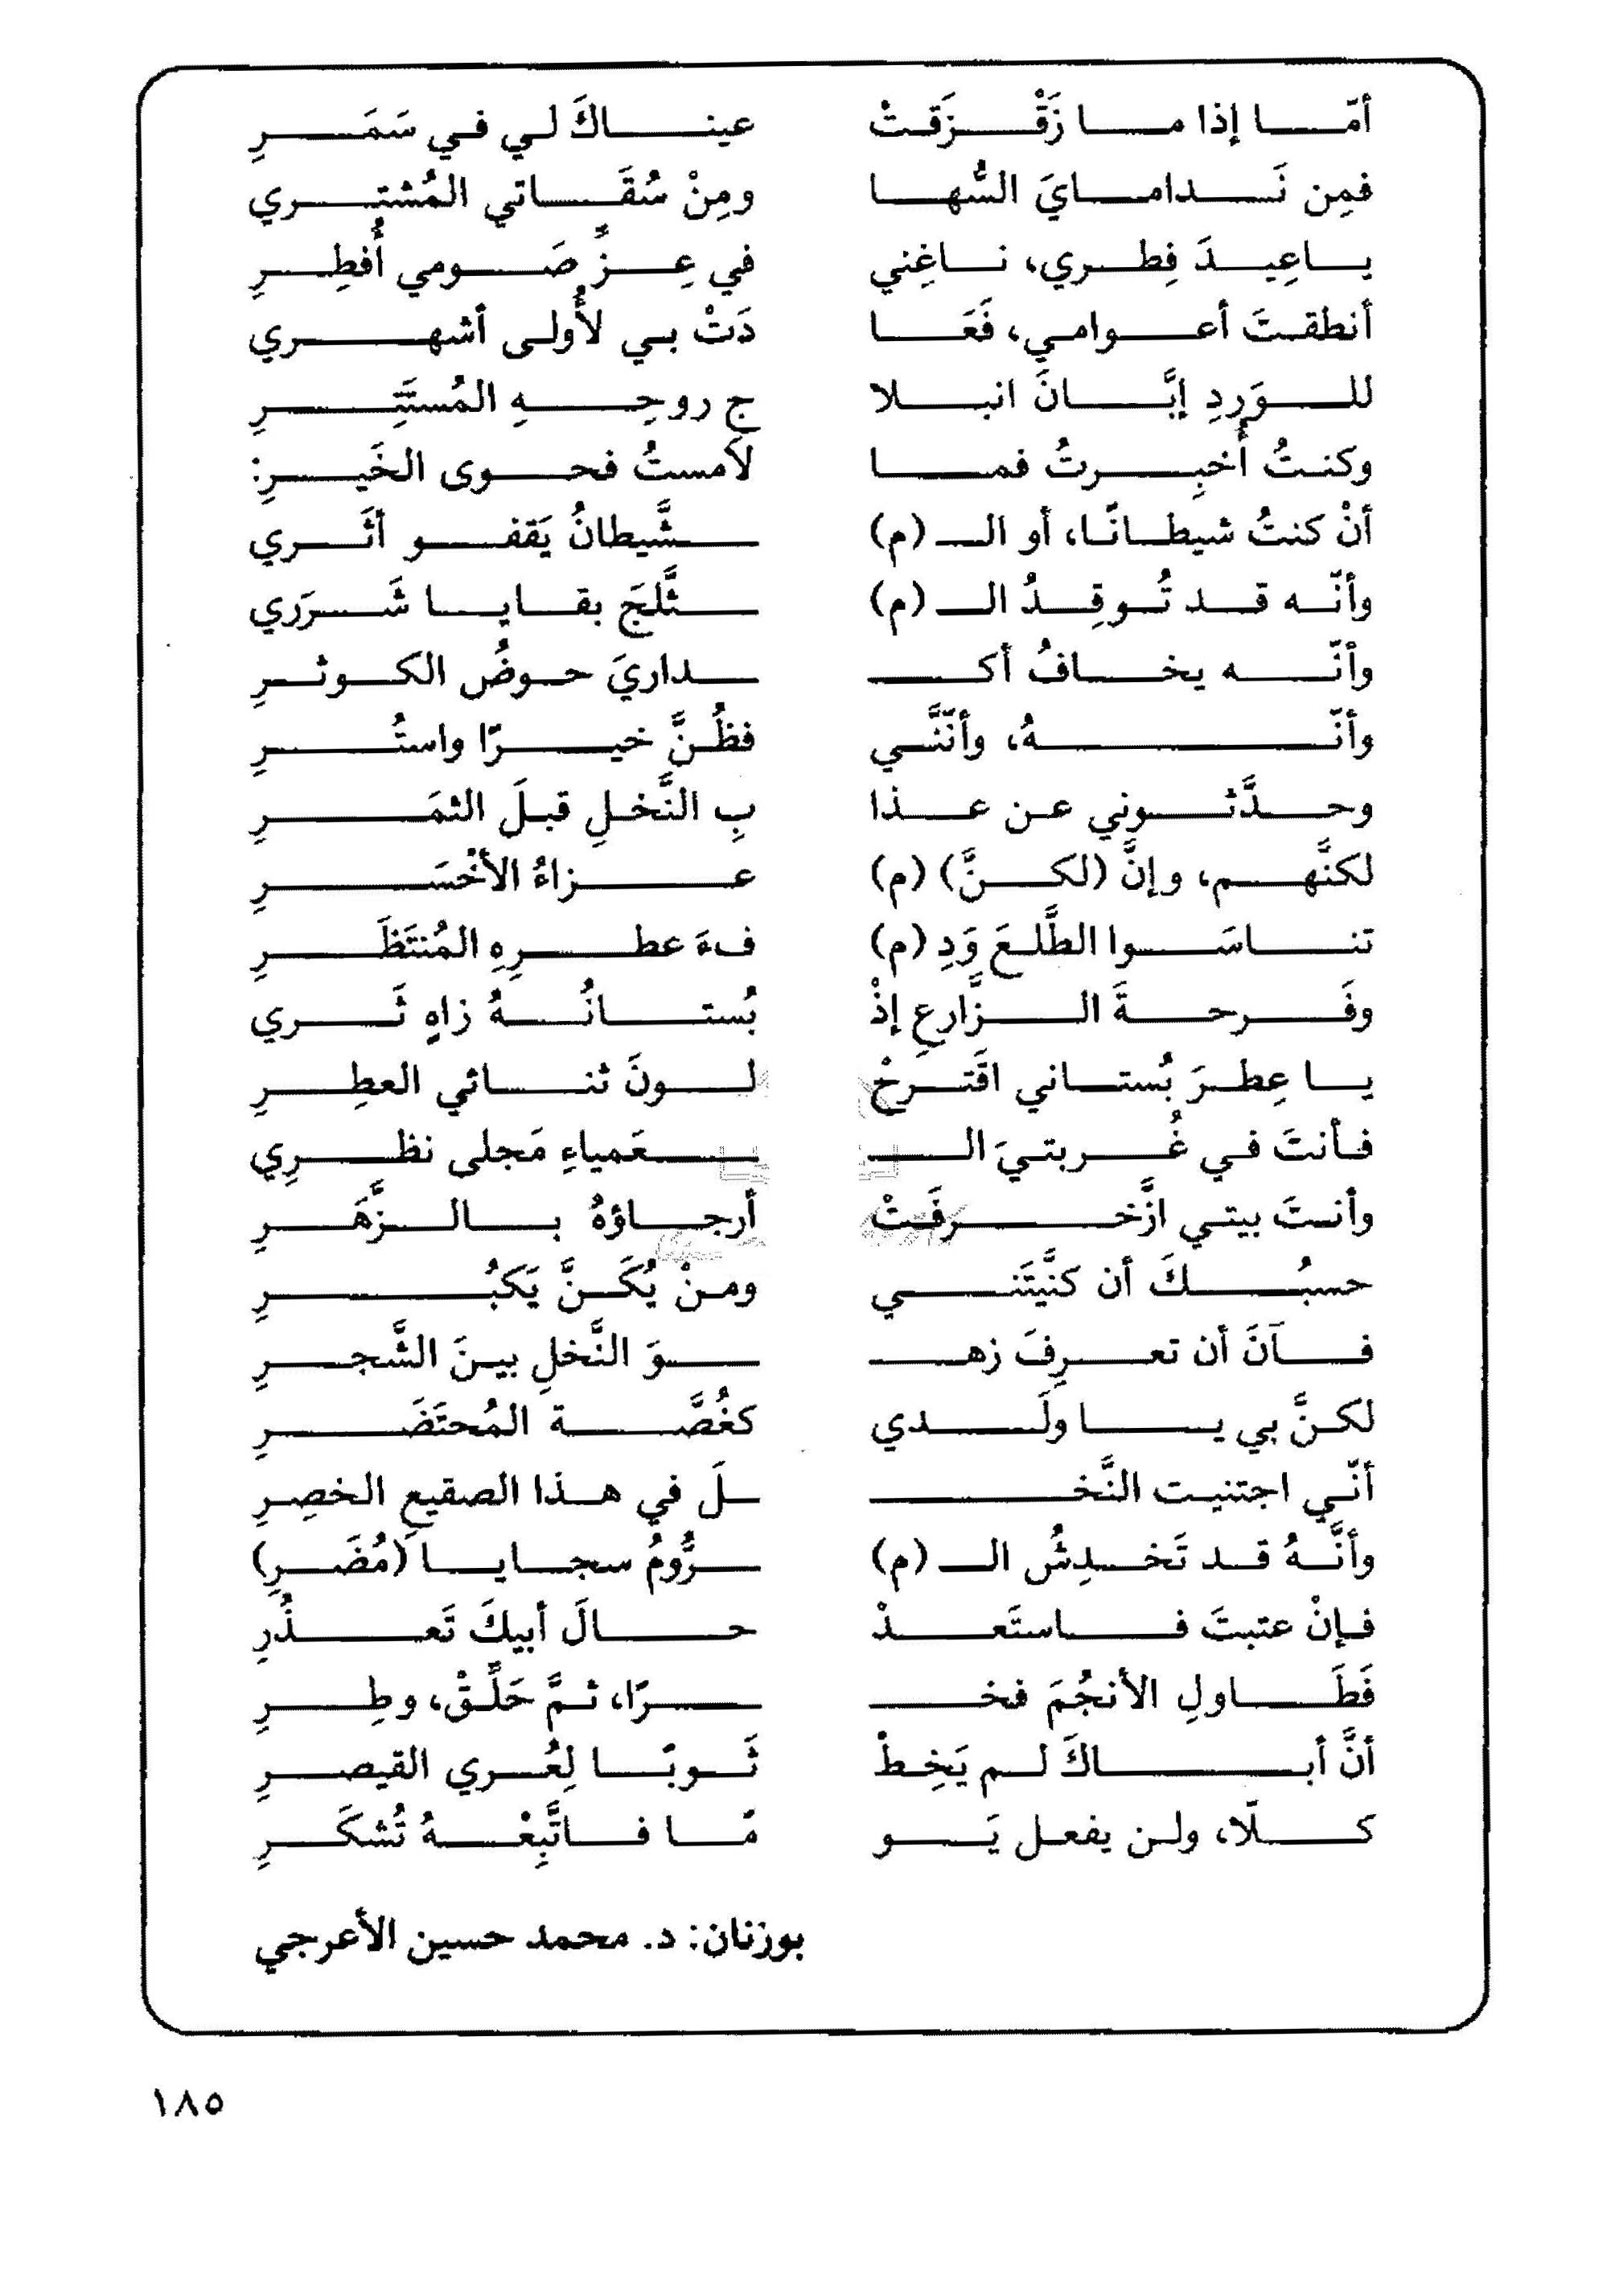 أمّا إذا ما زَقْزَقتْ عيناكَ لي في سَمَرِ
فمِن نَدامايَ السُّها ومِنْ سُقَاتي المُشتري
ياعِيدَ فِطري، ناغِني في عِزِّ صَومي أُفطِرِ
أنطقتَ أعوامي، فَعَا دَتْ بي لأُولى أشهري
للوَرِدِ إبَّانَ انبلا جِ روحِهِ المُستَتِرِ
وكنتُ أُخبِرتُ فما لامستُ فحوى الخَبَرِ:
أنْ كنتُ شيطانًا، أو الـ (م) ـشَّيطانُ يَقفو أثَري
وأنّه قد تُوقِدُ الـ (م) ـثَّلجَ بقايا شَرَري
وأنّه يخافُ أكـ ـداريَ حوضُ الكوثرِ
وأنّهُ، وأنّنَّي فظُنَّ خيرًا واستُرِ
وحدَّثوني عن عذا بِ النَّخلِ قبلَ الثمَرِ
لكنَّهم، وإنَّ (لكنَّ) (م) عزاءُ الأخْسَرِ
تناسَوا الطَّلعَ وَدِ (م) فءَ عطرِهِ المُنتَظَرِ
وفَرحةَ الزَّارعِ إذْ بُستانُهُ زاهٍ ثَري
يا عِطرَ بُستاني اقَترحْ لونَ ثنائي العطِرِ
فأنتَ في غُربتيَ الـ ـعَمياءِ مَجلى نظرِي
وأنتَ بيتي ازَّخرفَتْ أرجاؤهُ بالزَّهَرِ
حسبُكَ أن كنَّيتَني ومنْ يُكَنَّ يَكبُرِ
فآنَ أن تعرِفَ زهـ ـوَ النَّخلِ بينَ الشَّجرِ
لكنَّ بي يا ولَدي كغُصَّة المُحتَضَرِ
أنّي اجتنيت النَّخـ ـلَ في هذا الصقيعِ الخصِرِ
وأنَّهُ قد تَخدِشُ الـ (م) ـرُّومُ سجايا (مُضَرِ)
فإنْ عتبتَ فاستَعذْ حالَ أبيكَ تَعذُرِ
فَطَاولِ الأنجُمَ فخـ ـرًا، ثمَّ حَلِّقْ، وطِرِ
أنَّ أباكَ لم يَخِطْ ثَوبًا لِعُري القيصرِ
كلّا، ولن يفعل يَو مًا فاتَّبِعْهُ تُشكَرِ
بوزنان: د. محمد حسين الأعرجي
١٨٥